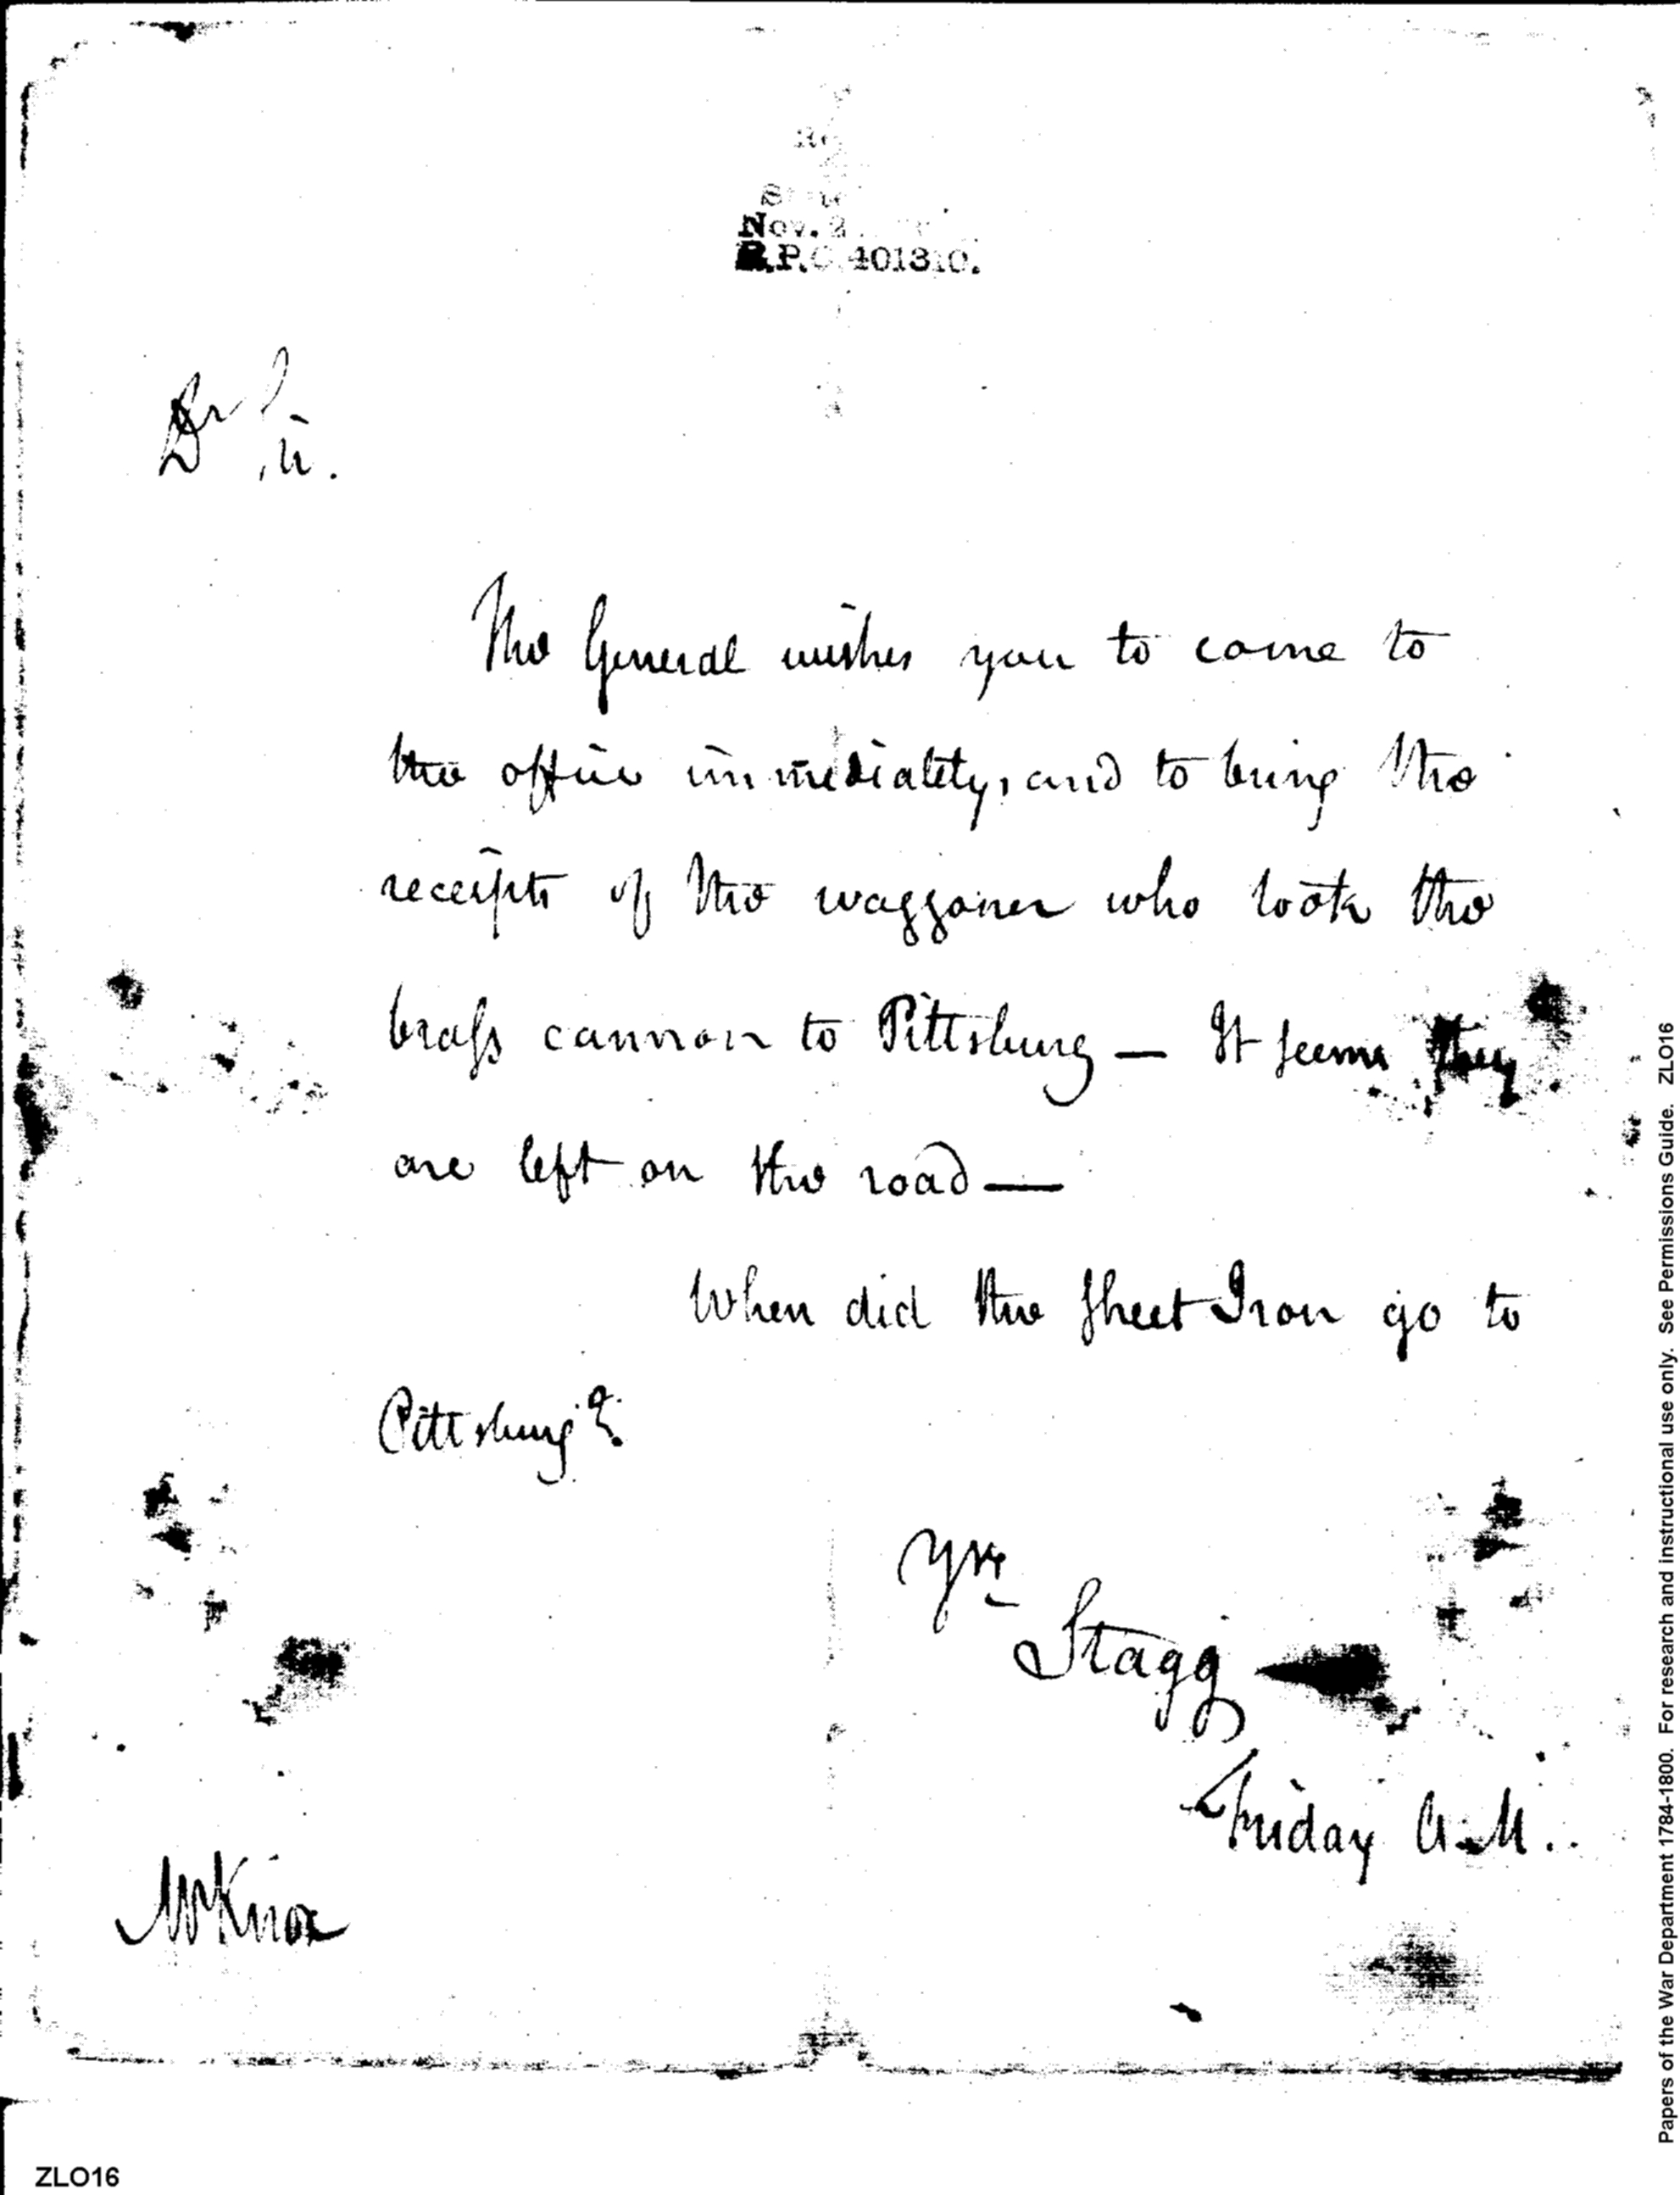 Nov. 2
R.P.C. 401310.
Dr Sir.
The General wishes you to come to
the office immediately, and to bring the
receipts of the waggoner who took the
brass cannon to Pittsburg — It seems they
are left on the road —
When did the Sheet Iron go to
Pittsburg?
Yrs
Stagg
Friday A.M.
Mr Knox
ZLO16
Papers of the War Department 1784-1800. For research and instructional use only. See Permissions Guide. ZLO16